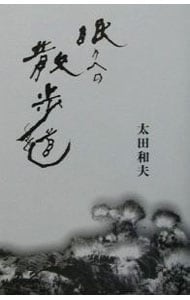 眠りへの
散歩道
太田和夫